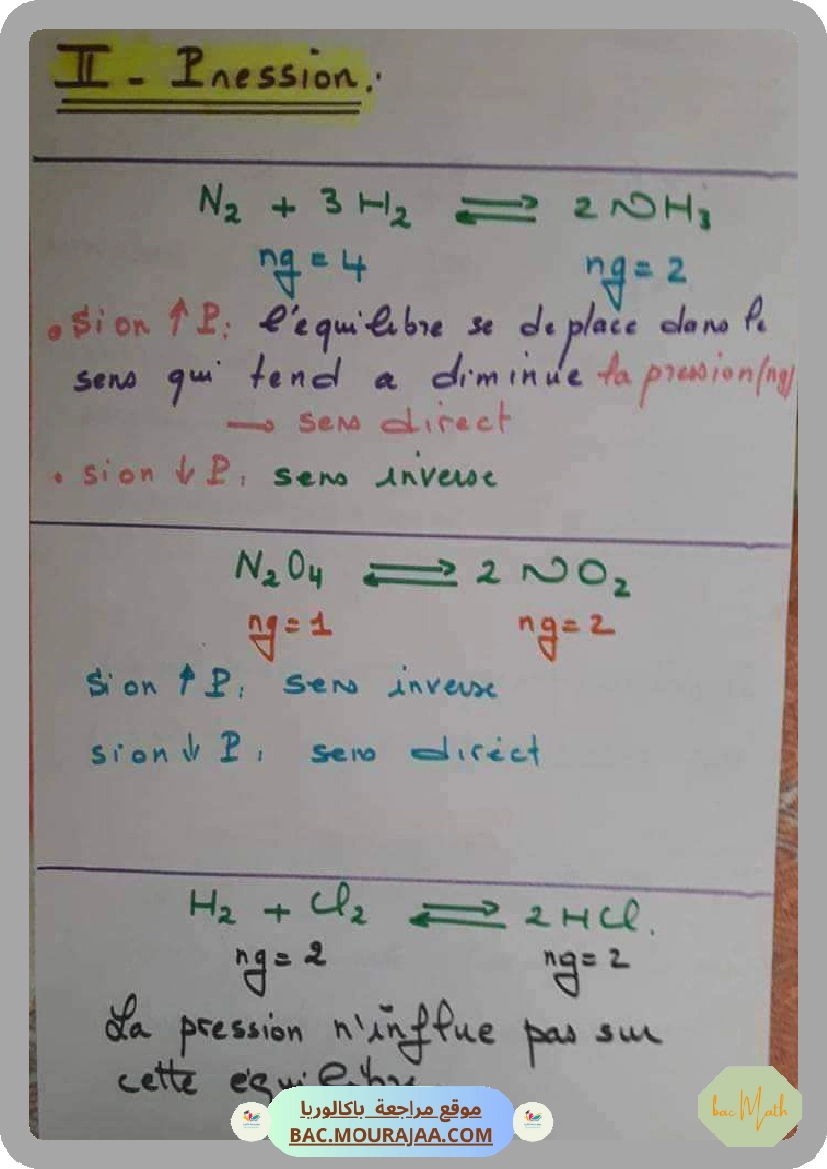 II - Pression.
N₂ + 3 H₂ ⇌ 2 NH₃
ng = 4 ng = 2
• Si on ↑ P : l'équilibre se deplace dans le
sens qui tend a diminue la pression (ng)
→ sens direct
• si on ↓ P : sens inverse
N₂O₄ ⇌ 2 NO₂
ng = 1 ng = 2
Si on ↑ P : sens inverse
si on ↓ P : sens direct
H₂ + Cl₂ ⇌ 2 HCl.
ng = 2 ng = 2
La pression n'influe pas sur
cette équilibre
موقع مراجعة باكالوريا
BAC.MOURAJAA.COM
bac Math